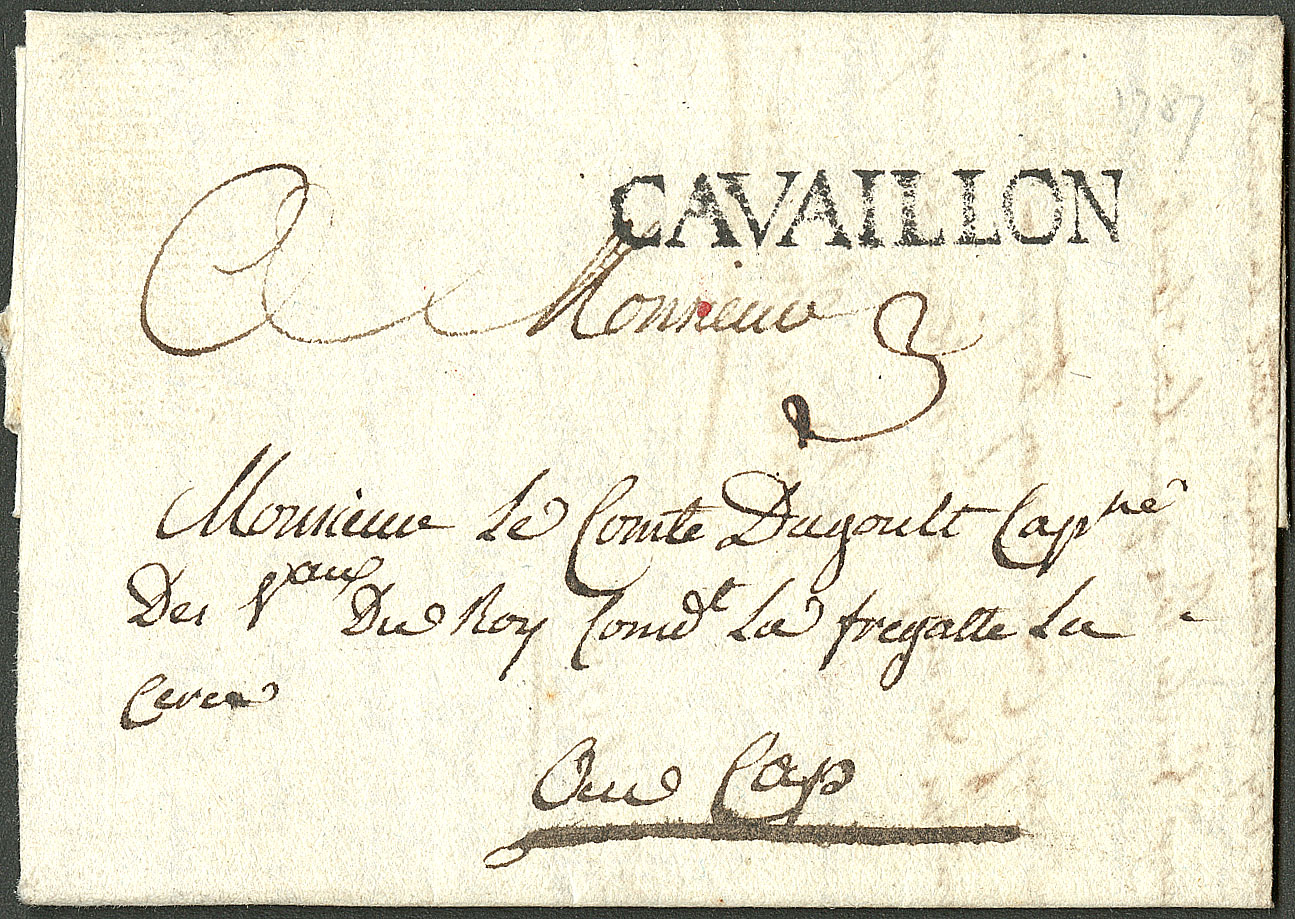 1787
CAVAILLON
A Monsieur
3
Monsieur Le Comte Dugoult Cap.ne
Des V.aux Du Roy Comd.t La fregatte La
Ceres
Au Cap